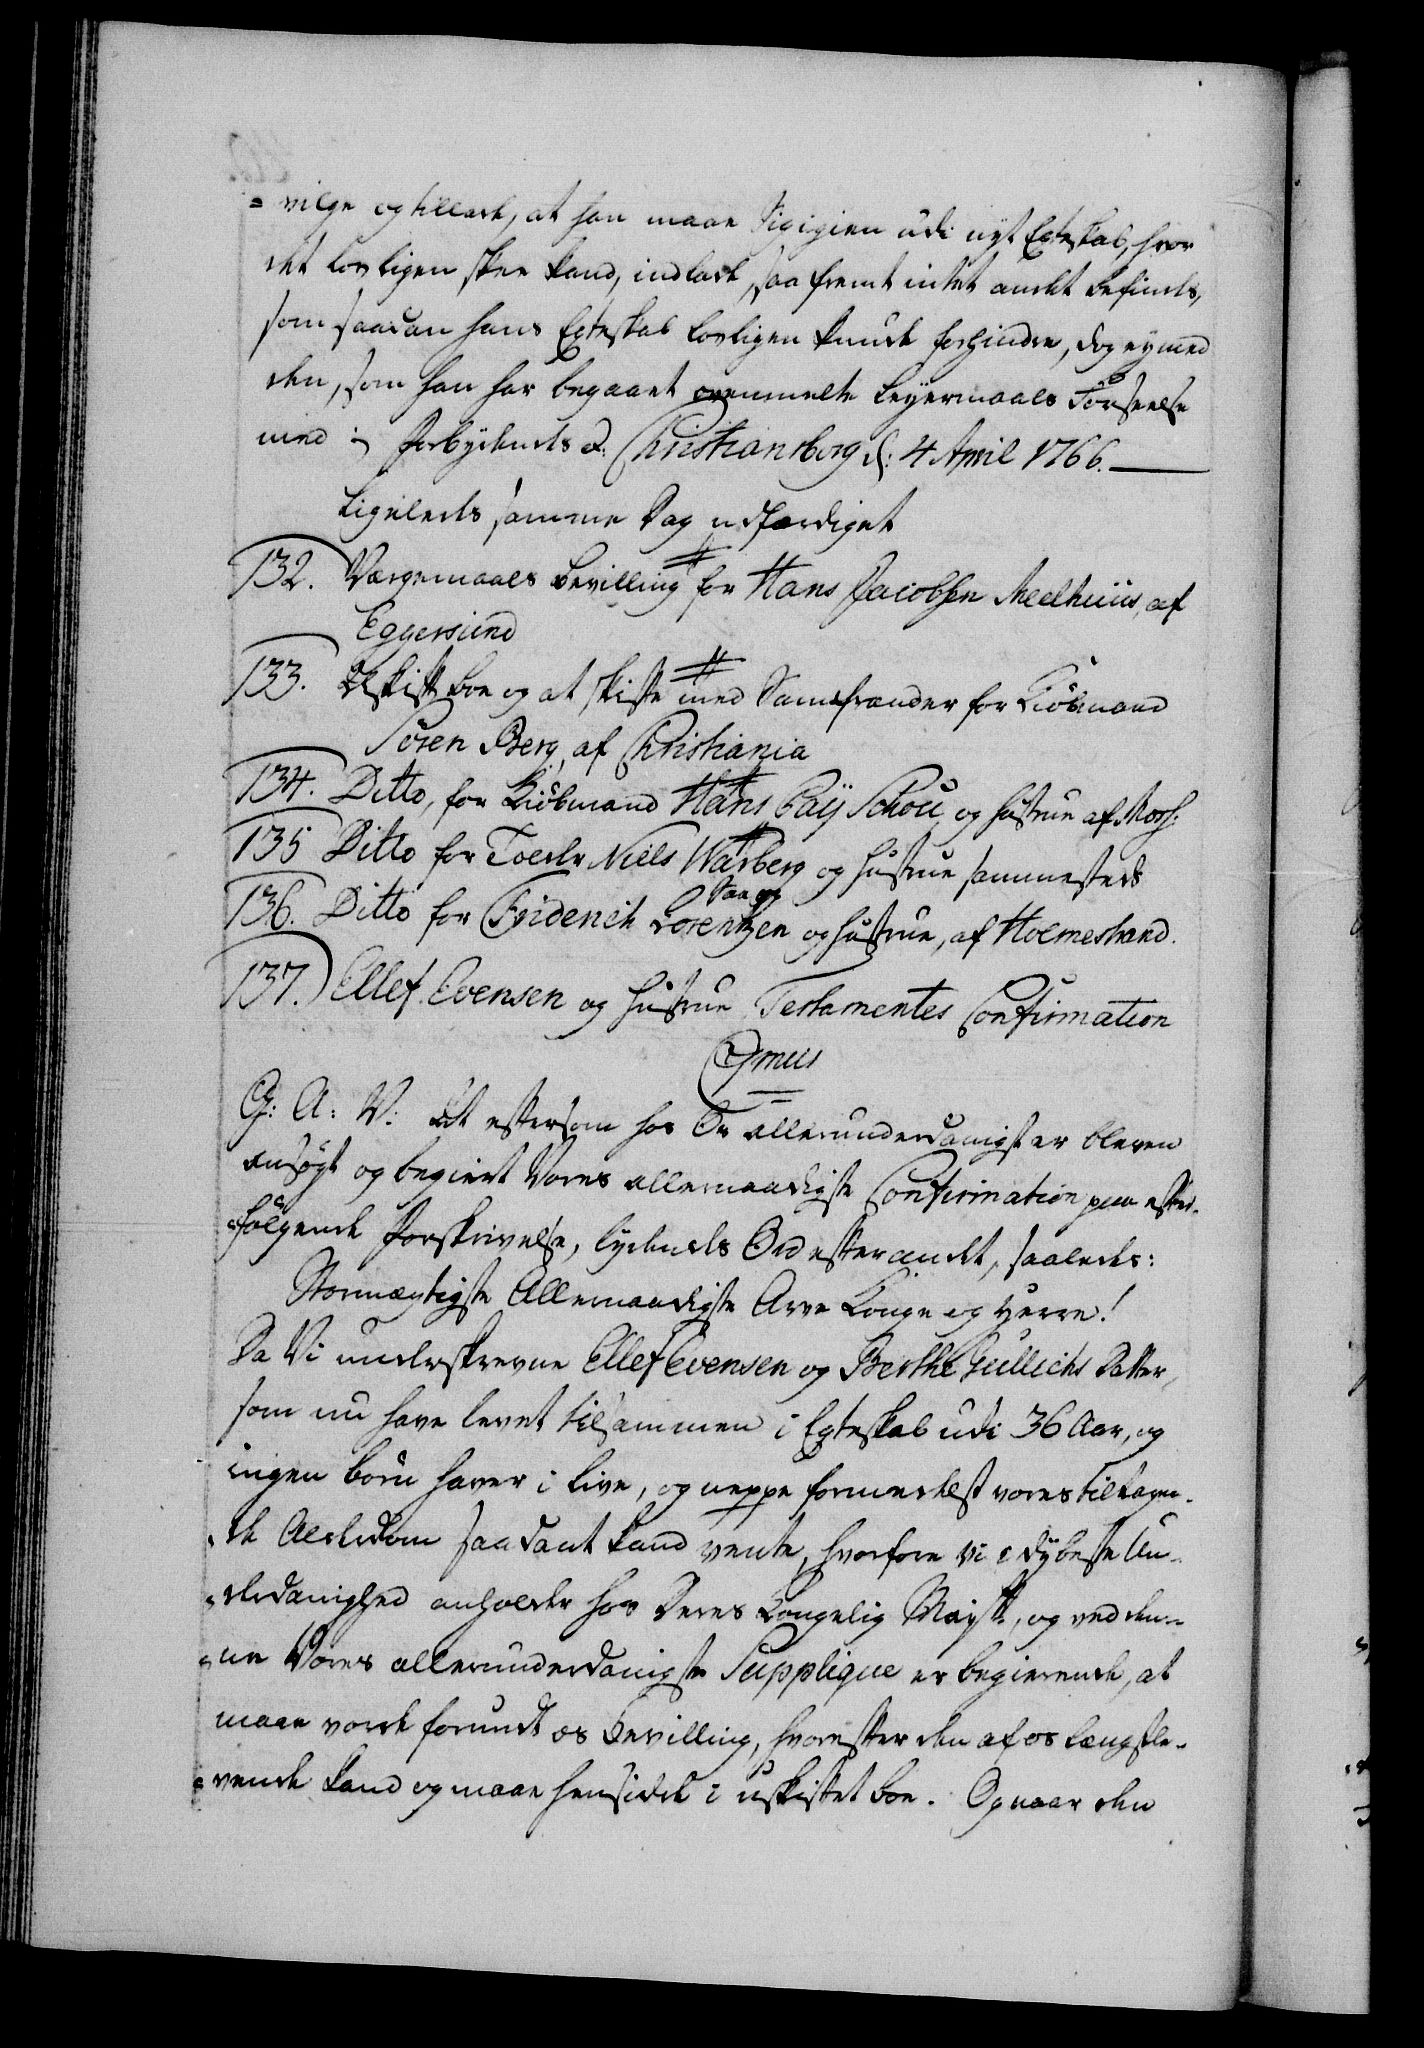 = vilge og tillade, at han maae sig igien udi nyt Egteskab, hvor
det lovligen skee kand, indlade, saa fremt intet andet befindes,
som saadan hans Egteskab lovligen kunde forhindre, dog ey med
den, som han har begaaet ovenmelte Leyermaals Forseelse
med ; Forbydendes &: Christiansborg d: 4 April 1766.
Ligeledes samme Dag udfærdiget
132. Værgemaals Bevilling for Hans Jacobsen Meelhuus, af
Eggersund
133. Uskift Boe og at skifte med Samfrænder for Kiöbmand
Sören Berg, af Christiania
134. Ditto, for Kiöbmand Hans Paÿ Schou og Hustrue af Moss:
135 Ditto for Toeler Niels Warberg og Hustrue sammesteds
136. Ditto for Friderich Lorentzen Saugs og Hustrue, af Holmestrand.
137. Ellef Evensen og Hustrue Testamentes Confirmation
Gmus
G: A: V: At eftersom hos Os allerunderdanigst er bleven
ansögt og begiert Vores allernaadigste Confirmation paa efter-
=fölgende Forskrivelse, lydendes Ord efter andet, saaledes:
Stormægtigste Allernaadigste Arve Konge og Herre!
Da Vi underskrevne Ellef Evensen og Berthe Gullichs Datter,
som nu have levet tilsammen i Egteskab udi 36 Aar, og
ingen börn haver i live, og neppe formedelst vores tiltagen-
de Alderdom saadant kand vente, hvorfore vi i dybeste Un-
=derdanighed anholder hos Deres Kongelig Mayst:, og ved den-
=ne Vores allerunderdanigste Supplique er begierende, at
maae vorde forundt os Bevilling, hvorefter den af os længstle-
=vende kand og maae hensidde i uskiftet boe. Og naar den